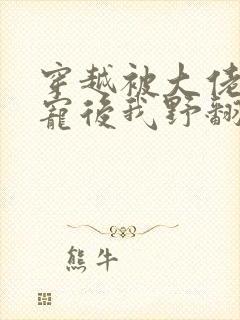 穿越被大佬
寵後我野翻
熊牛